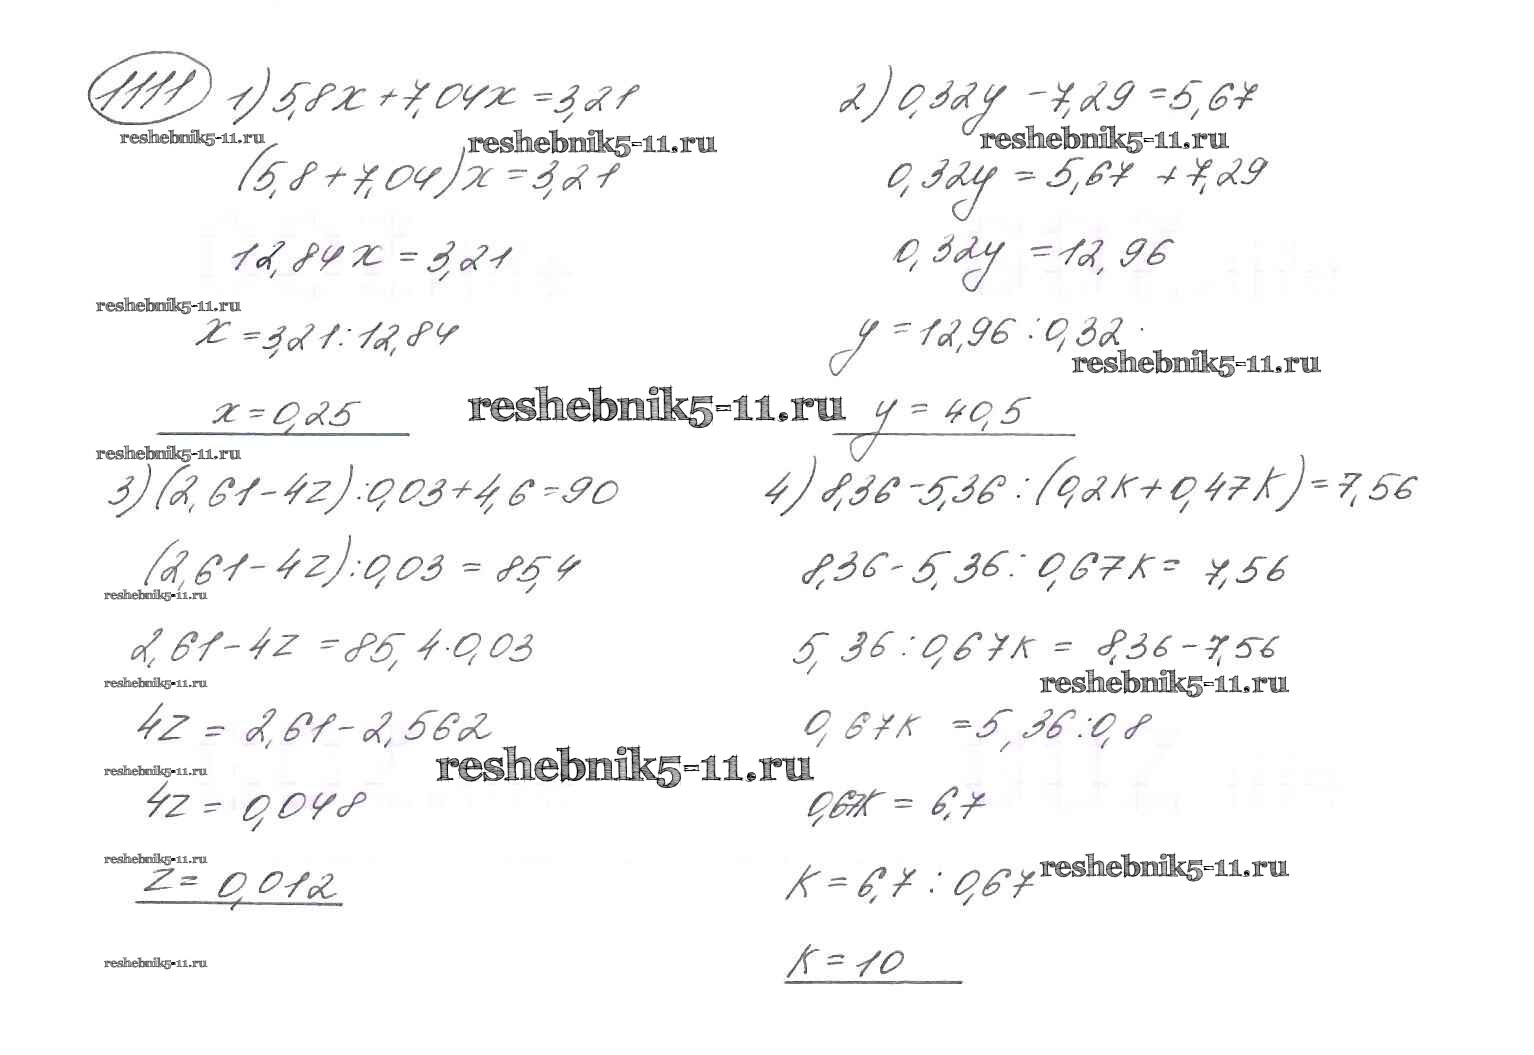 1111 1) 5,8x + 7,04x = 3,21
reshebnik5-11.ru reshebnik5-11.ru
(5,8 + 7,04)x = 3,21
12,84x = 3,21
reshebnik5-11.ru
x = 3,21 : 12,84
x = 0,25
reshebnik5-11.ru
2) 0,32y - 7,29 = 5,67
reshebnik5-11.ru
0,32y = 5,67 + 7,29
0,32y = 12,96
y = 12,96 : 0,32
reshebnik5-11.ru
y = 40,5
reshebnik5-11.ru
3) (2,61 - 4z) : 0,03 + 4,6 = 90
(2,61 - 4z) : 0,03 = 85,4
reshebnik5-11.ru
2,61 - 4z = 85,4 · 0,03
reshebnik5-11.ru
4z = 2,61 - 2,562
reshebnik5-11.ru
reshebnik5-11.ru
4z = 0,048
reshebnik5-11.ru
z = 0,012
reshebnik5-11.ru
4) 8,36 - 5,36 : (0,2к + 0,47к) = 7,56
8,36 - 5,36 : 0,67к = 7,56
5,36 : 0,67к = 8,36 - 7,56
reshebnik5-11.ru
0,67к = 5,36 : 0,8
0,67к = 6,7
reshebnik5-11.ru
к = 6,7 : 0,67
к = 10